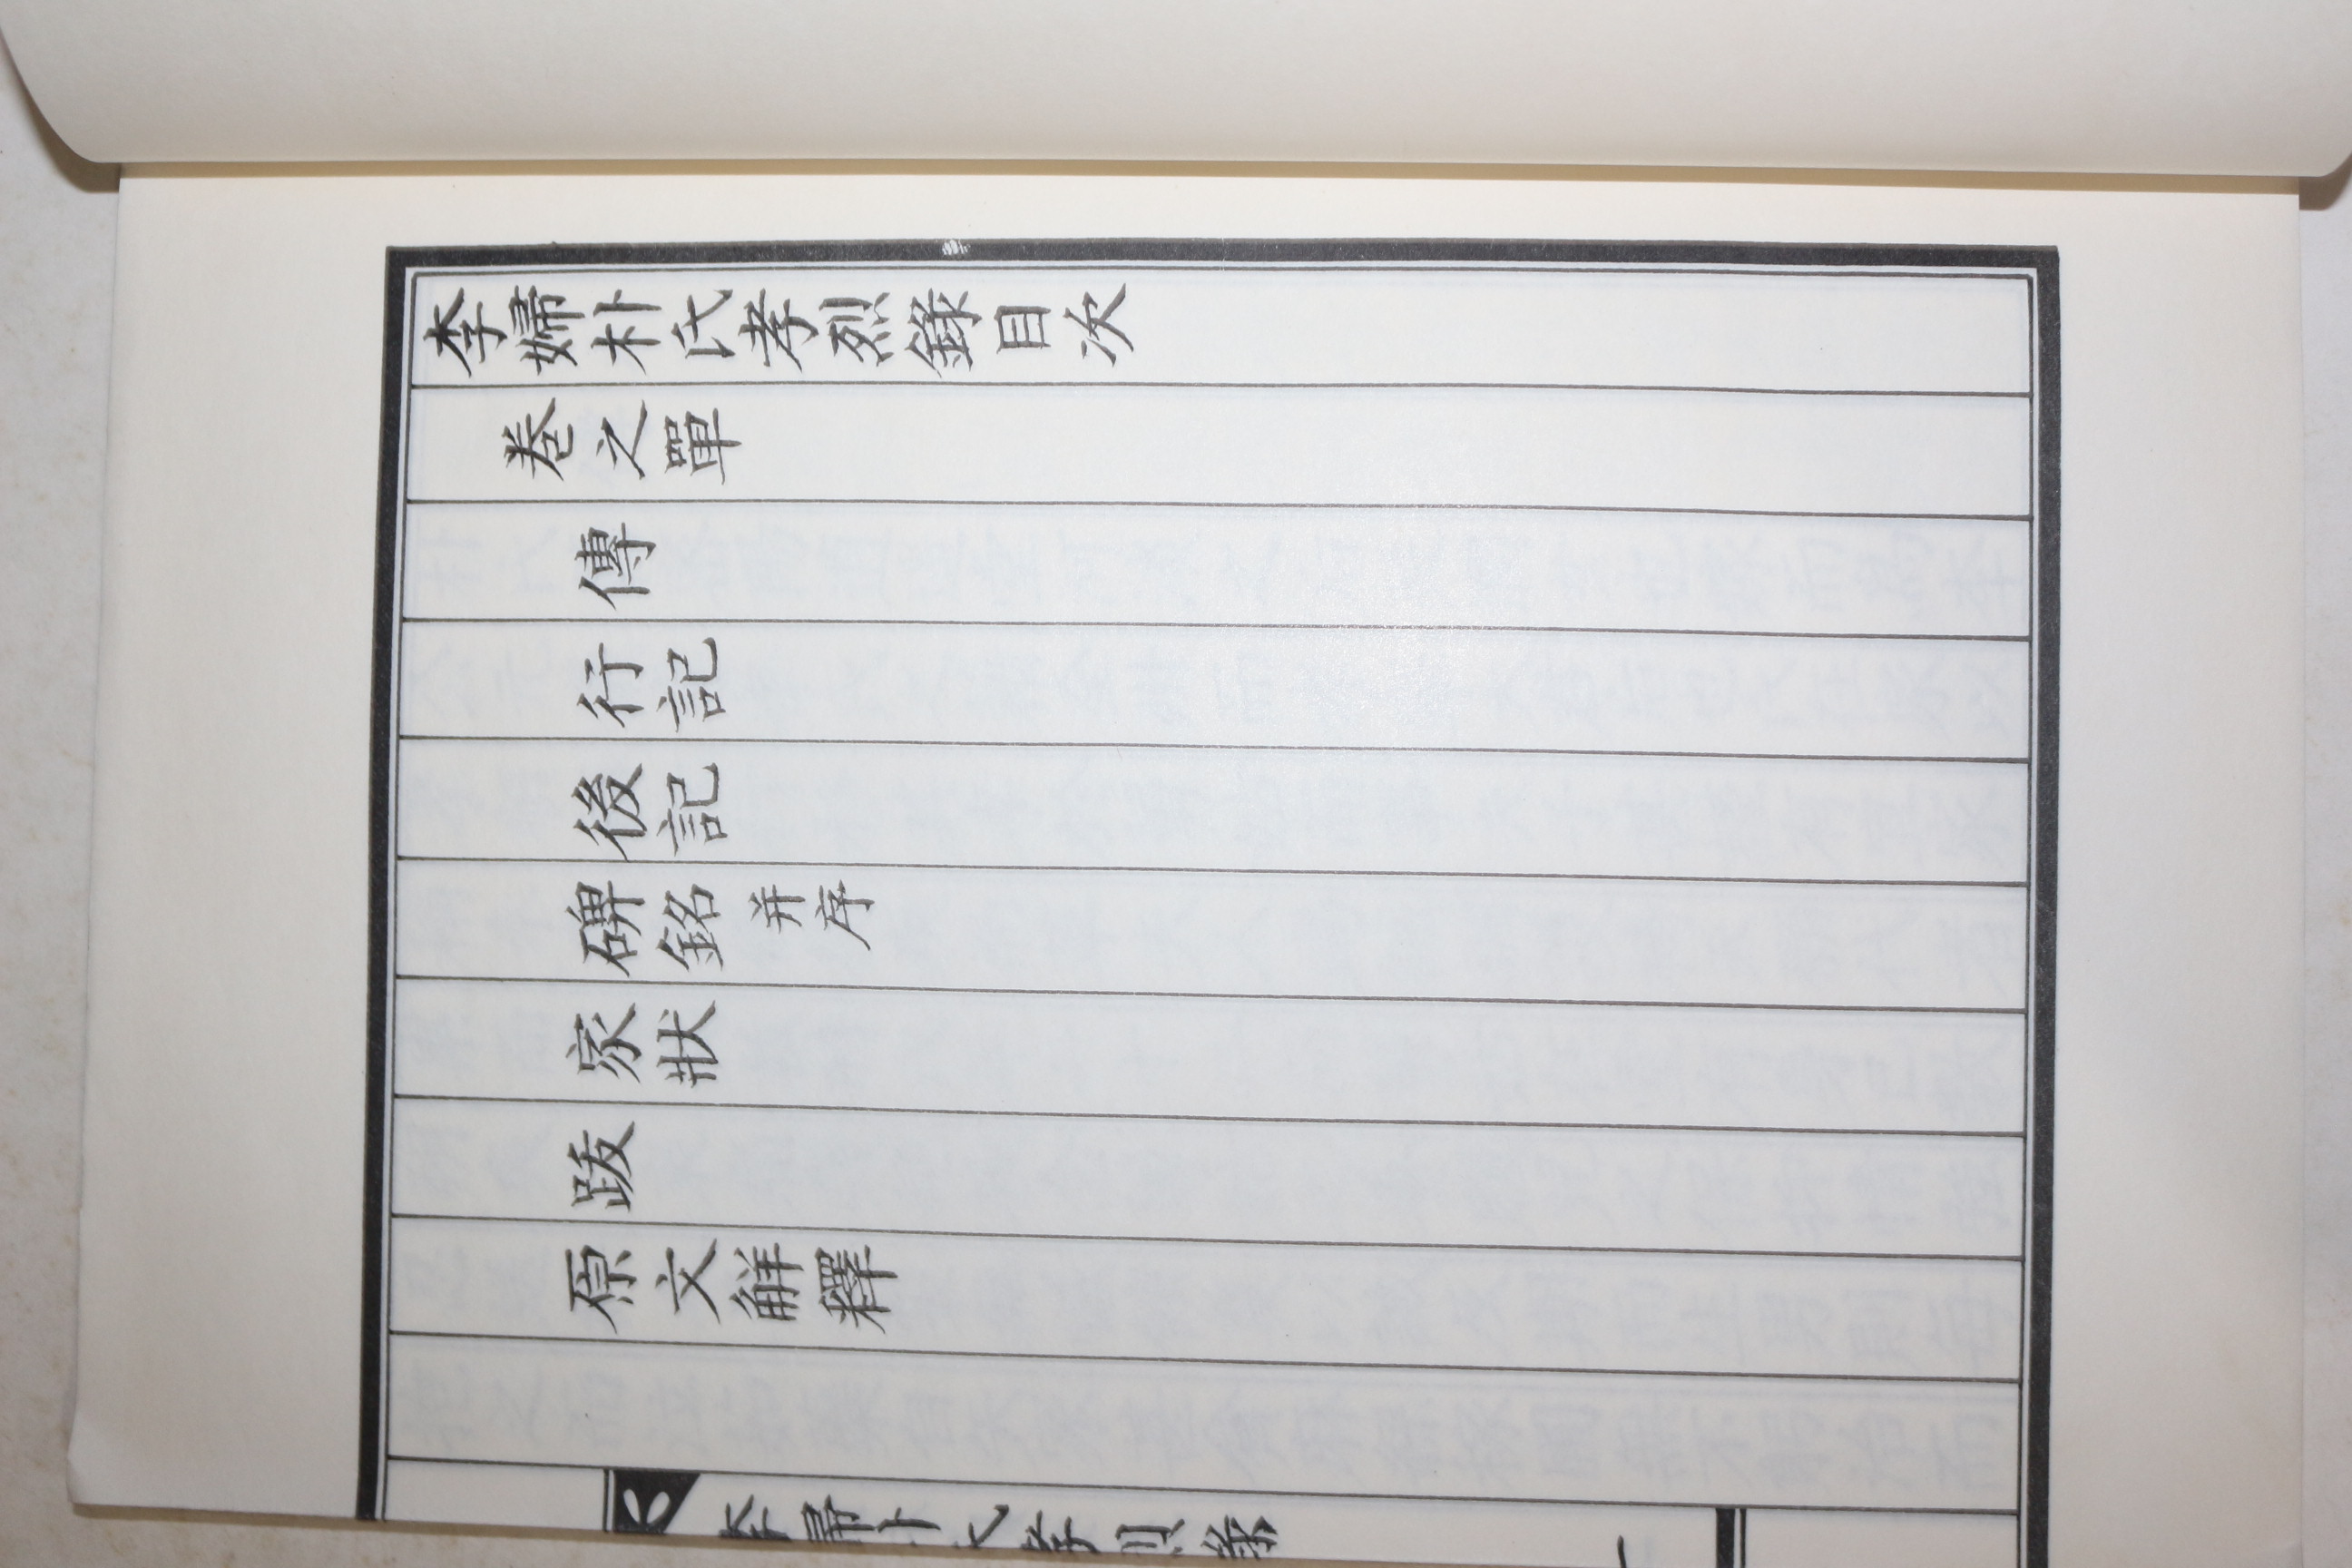 李婦朴氏孝烈錄目次
卷之單
傳
行記
後記
碑銘 并序
家狀
跋
原文解釋
李婦朴氏孝烈錄
一